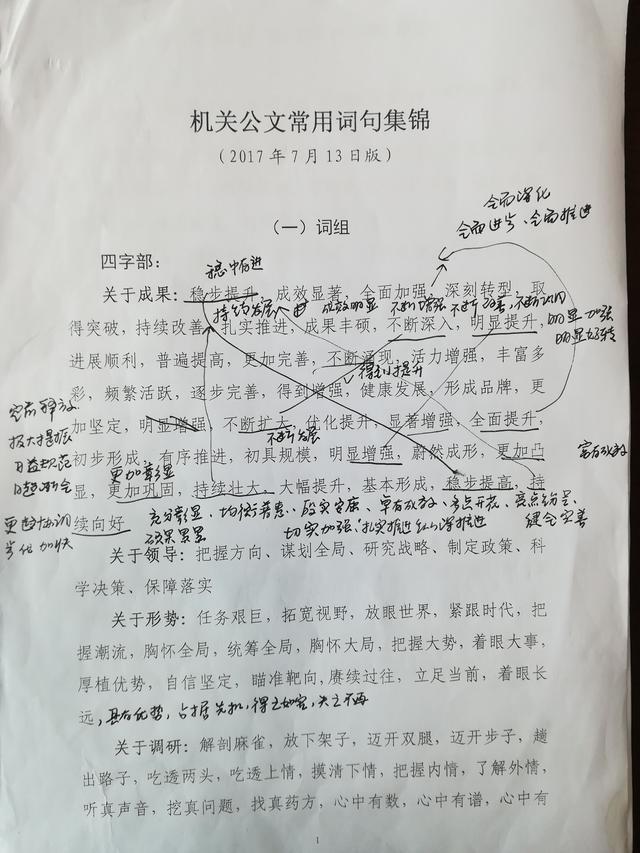 机关公文常用词句集锦
（2017年7月13日版）
全面深化
全面进步、全面推进
（一）词组
四字部：
稳中有进
关于成果：稳步提升，成效显著，全面加强，深刻转型，取
持续发展
成效明显 不断增强 不断改善，不断巩固
得突破，持续改善，扎实推进，成果丰硕，不断深入，明显提升，
明显加强
明显好转
进展顺利，普遍提高，更加完善，不断涌现，活力增强，丰富多
得到提升
彩，频繁活跃，逐步完善，得到增强，健康发展，形成品牌，更
加坚定，明显增强，不断扩大，优化提升，显著增强，全面提升，
不断发展
初步形成，有序推进，初具规模，明显增强，蔚然成形，更加凸
更加彰显
显，更加巩固，持续壮大，大幅提升，基本形成，稳步提高，持
续向好
日益规范
更趋协调
充分彰显、均衡普惠、殷实安康、卓有成效、多点开花、亮点纷呈、
硕果累累
切实加强、扎实推进、纵深推进
健全完善
关于领导：把握方向、谋划全局、研究战略、制定政策、科
学决策、保障落实
关于形势：任务艰巨，拓宽视野，放眼世界，紧跟时代，把
握潮流，胸怀全局，统筹全局，胸怀大局，把握大势，着眼大事，
厚植优势，自信坚定，瞄准靶向，赓续过往，立足当前，着眼长
远，具有优势，占据先机，得之如宝，失之不再
关于调研：解剖麻雀，放下架子，迈开双腿，迈开步子，趟
出路子，吃透两头，吃透上情，摸清下情，把握内情，了解外情，
听真声音，挖真问题，找真药方，心中有数，心中有谱，心中有
1